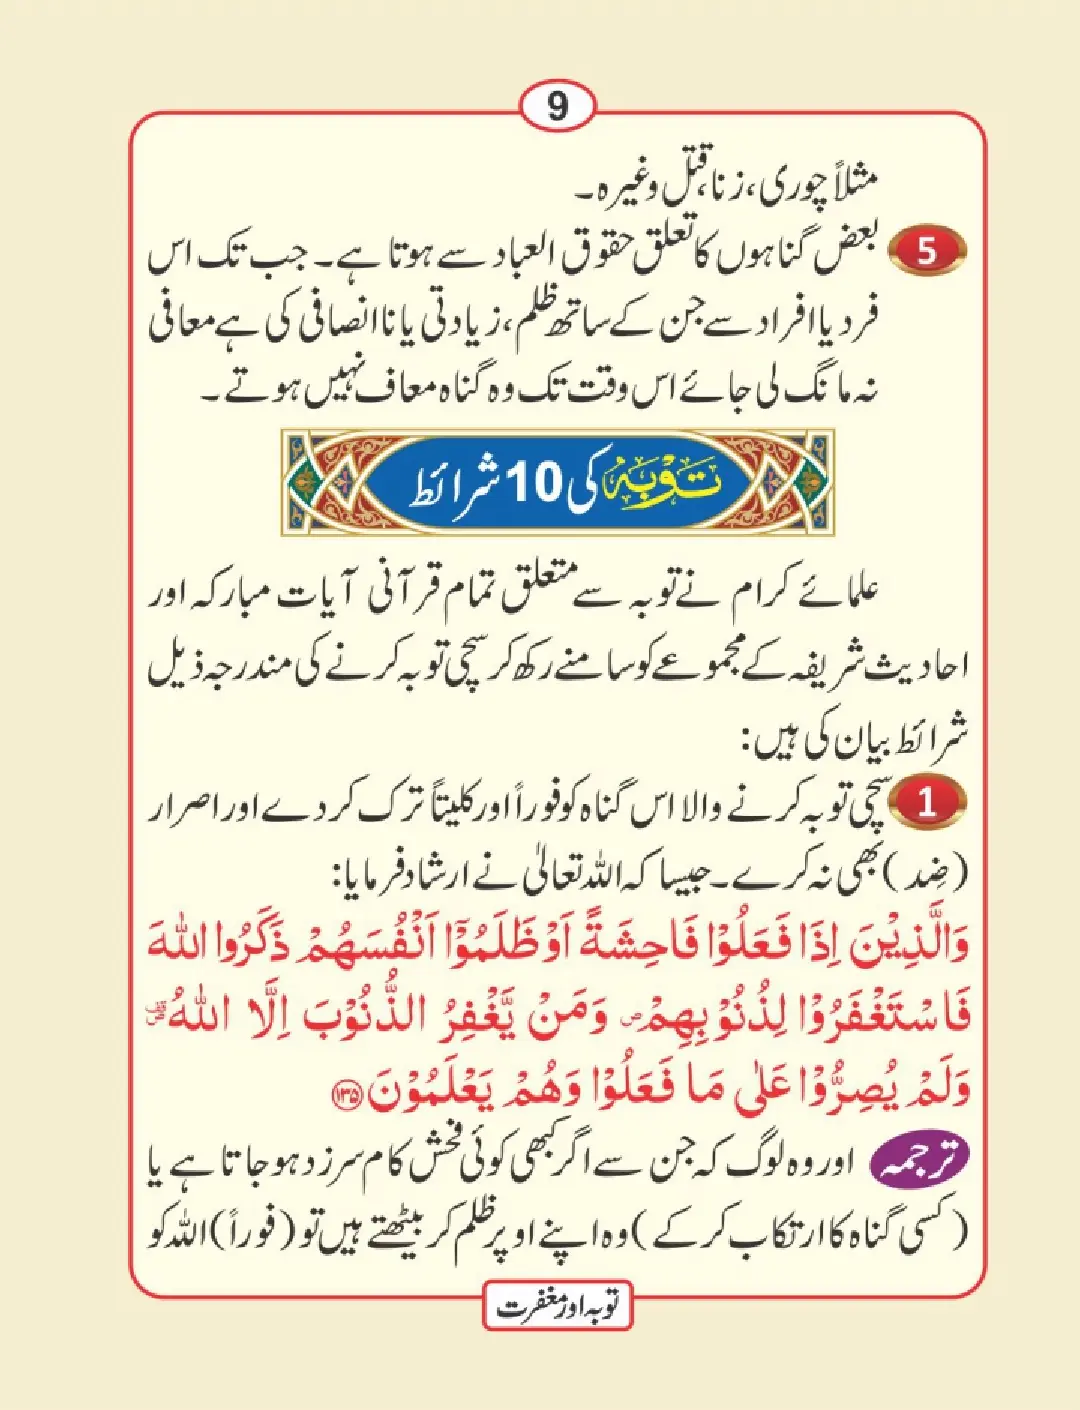 9
مثلاً چوری، زنا، قتل وغیرہ۔
5 بعض گناہوں کا تعلق حقوق العباد سے ہوتا ہے۔ جب تک اس
فرد یا افراد سے جن کے ساتھ ظلم، زیادتی یا ناانصافی کی ہے معافی
نہ مانگ لی جائے اس وقت تک وہ گناہ معاف نہیں ہوتے۔
توبہ کی 10 شرائط
علمائے کرام نے توبہ سے متعلق تمام قرآنی آیات مبارکہ اور
احادیث شریفہ کے مجموعے کو سامنے رکھ کر سچی توبہ کرنے کی مندرجہ ذیل
شرائط بیان کی ہیں:
1 سچی توبہ کرنے والا اس گناہ کو فوراً اور کلیتاً ترک کر دے اور اصرار
(ضِد) بھی نہ کرے۔ جیسا کہ اللہ تعالیٰ نے ارشاد فرمایا:
وَالَّذِيْنَ اِذَا فَعَلُوْا فَاحِشَةً اَوْ ظَلَمُوْۤا اَنْفُسَهُمْ ذَكَرُوا اللّٰهَ
فَاسْتَغْفَرُوْا لِذُنُوْبِهِمْ ۪ وَمَنْ يَّغْفِرُ الذُّنُوْبَ اِلَّا اللّٰهُ ۪۫
وَلَمْ يُصِرُّوْا عَلٰى مَا فَعَلُوْا وَهُمْ يَعْلَمُوْنَ ﴿۱۳۵﴾
ترجمہ اور وہ لوگ کہ جن سے اگر کبھی کوئی فحش کام سرزد ہو جاتا ہے یا
(کسی گناہ کا ارتکاب کر کے) وہ اپنے اوپر ظلم کر بیٹھتے ہیں تو (فوراً) اللہ کو
توبہ اور مغفرت